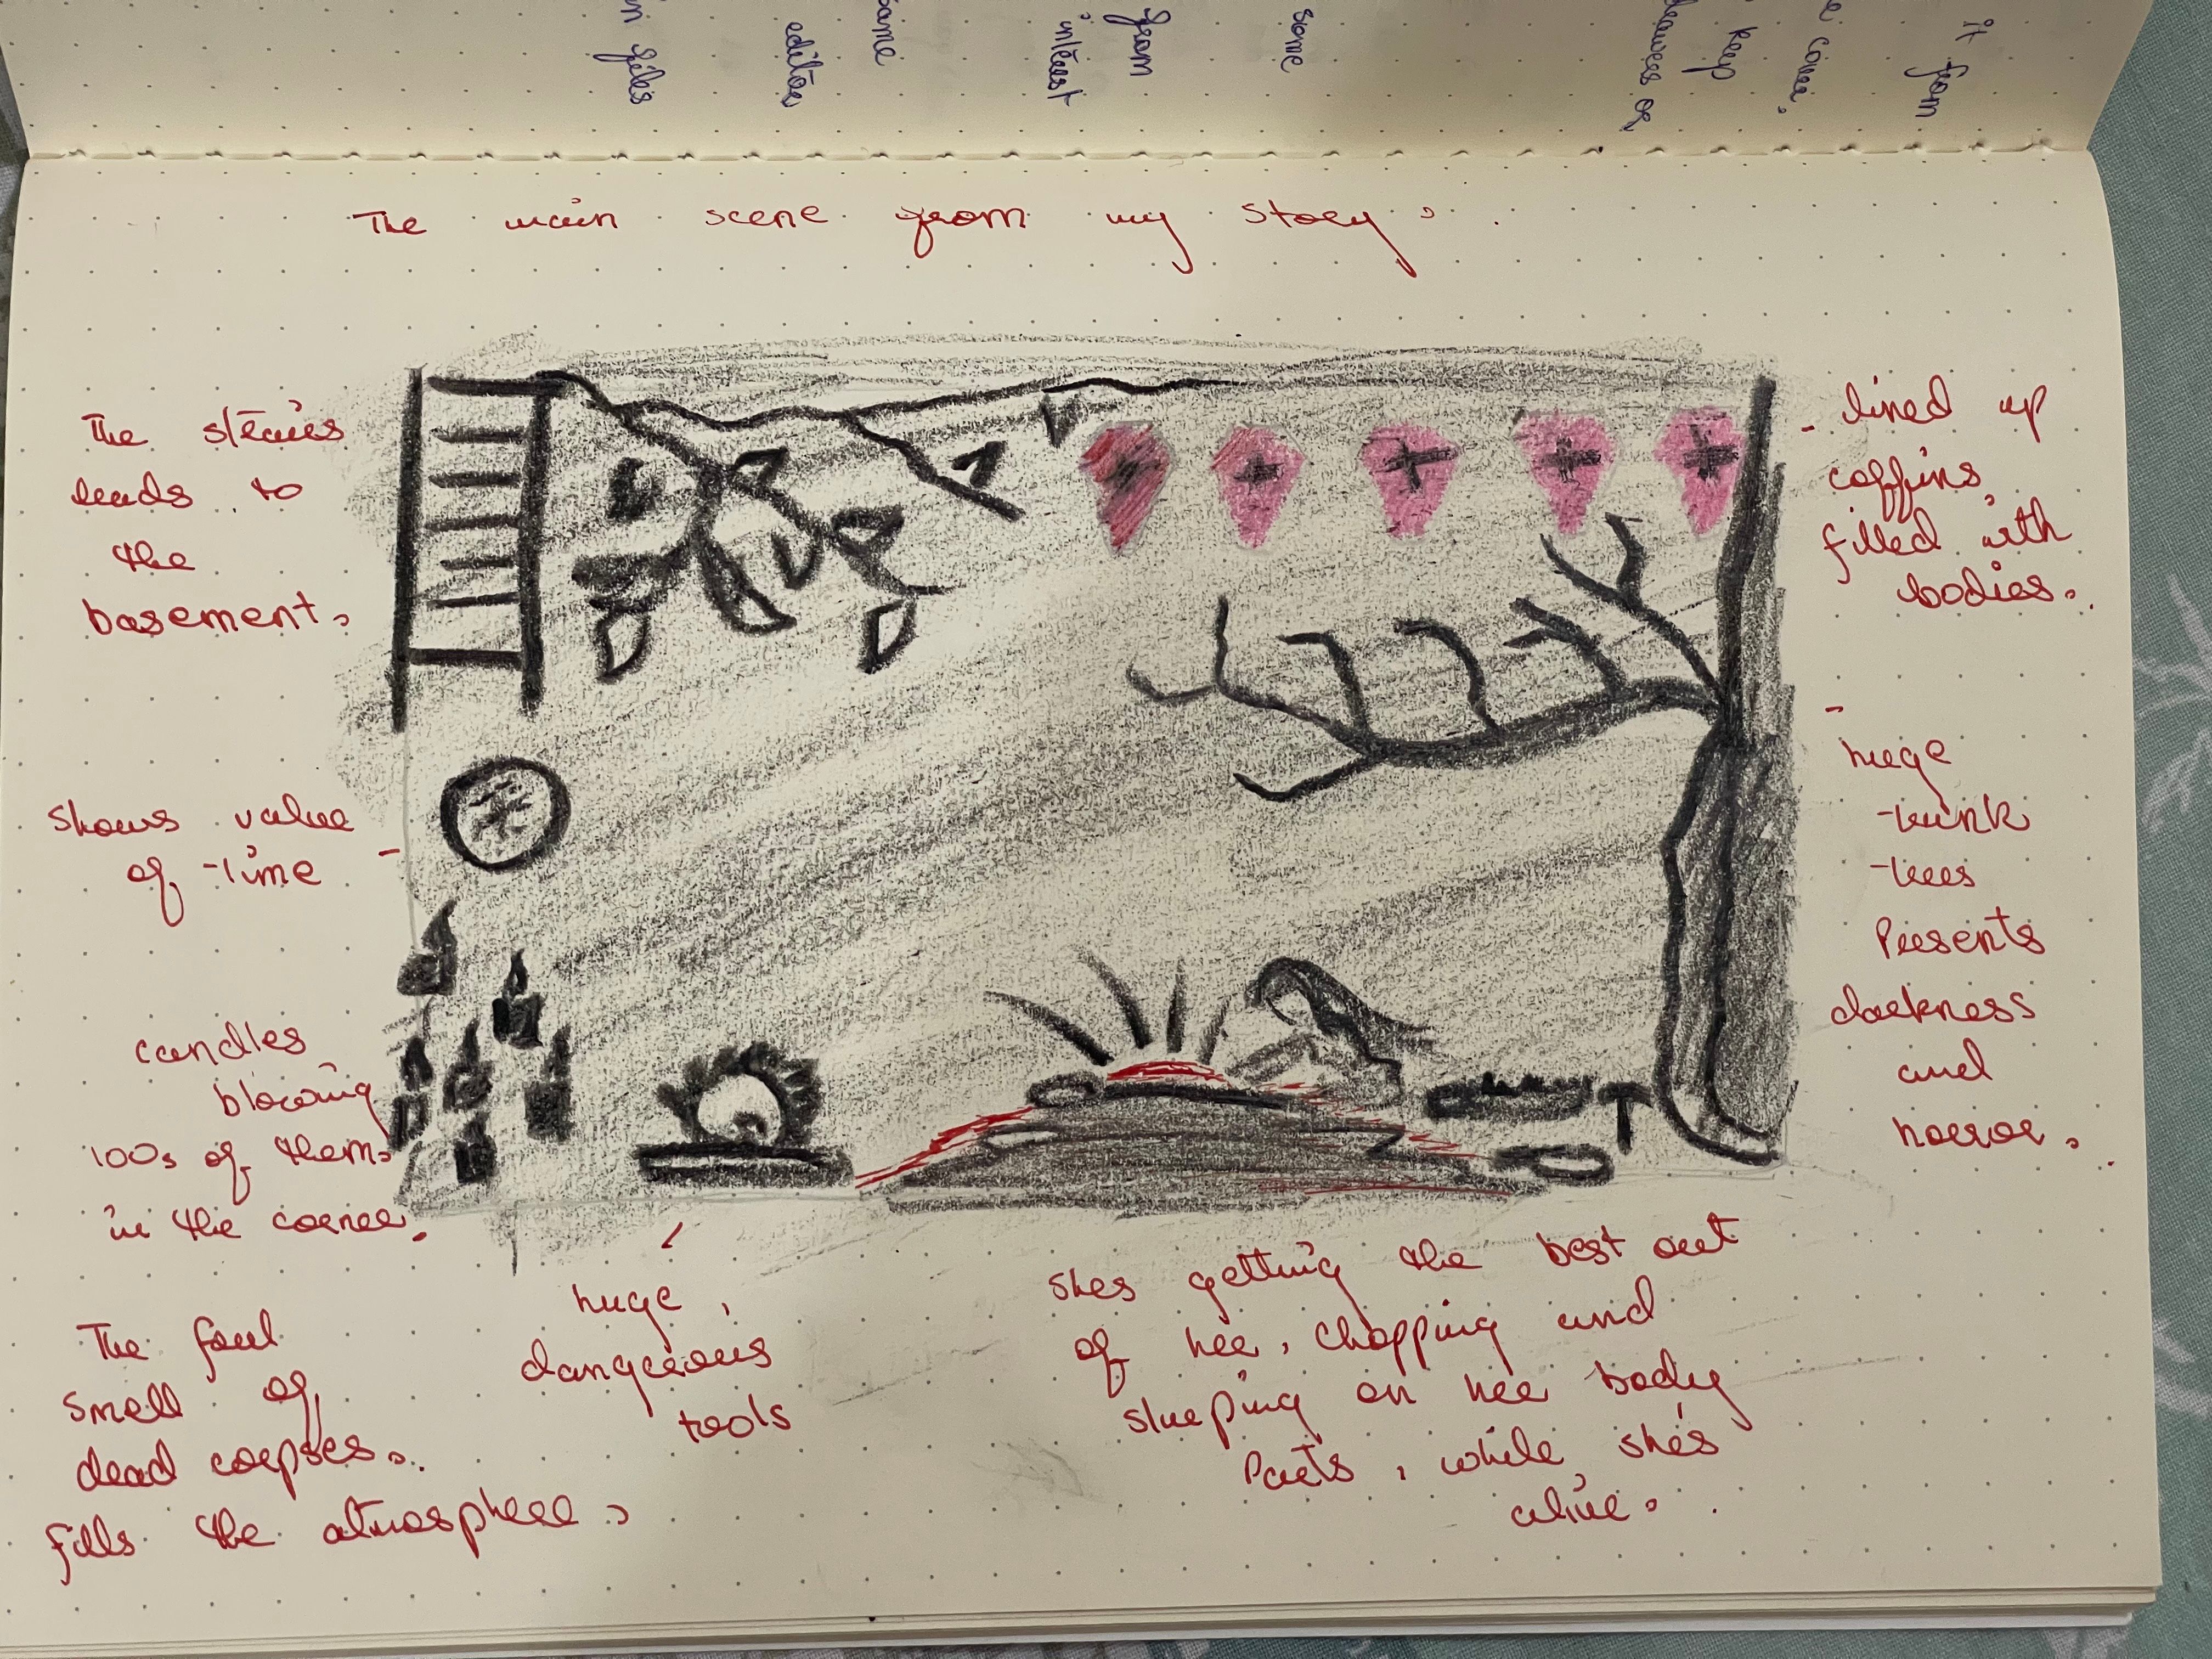 The main scene from my story.
The stairs
leads to
the
basement.
shows value
of time
candles
blowing
100s of them.
in the corner.
The foul
smell of
dead corpses.
fills the atmosphere.
huge,
dangerous
tools
shes getting the best out
of her, chopping and
on her body
Parts, while she's
alive.
lined up
coffins
filled with
bodies.
huge
trunk
trees
Presents
darkness
and
horror.
files
editor
same
interest
from
some
drawers or
keep
cover.
it from